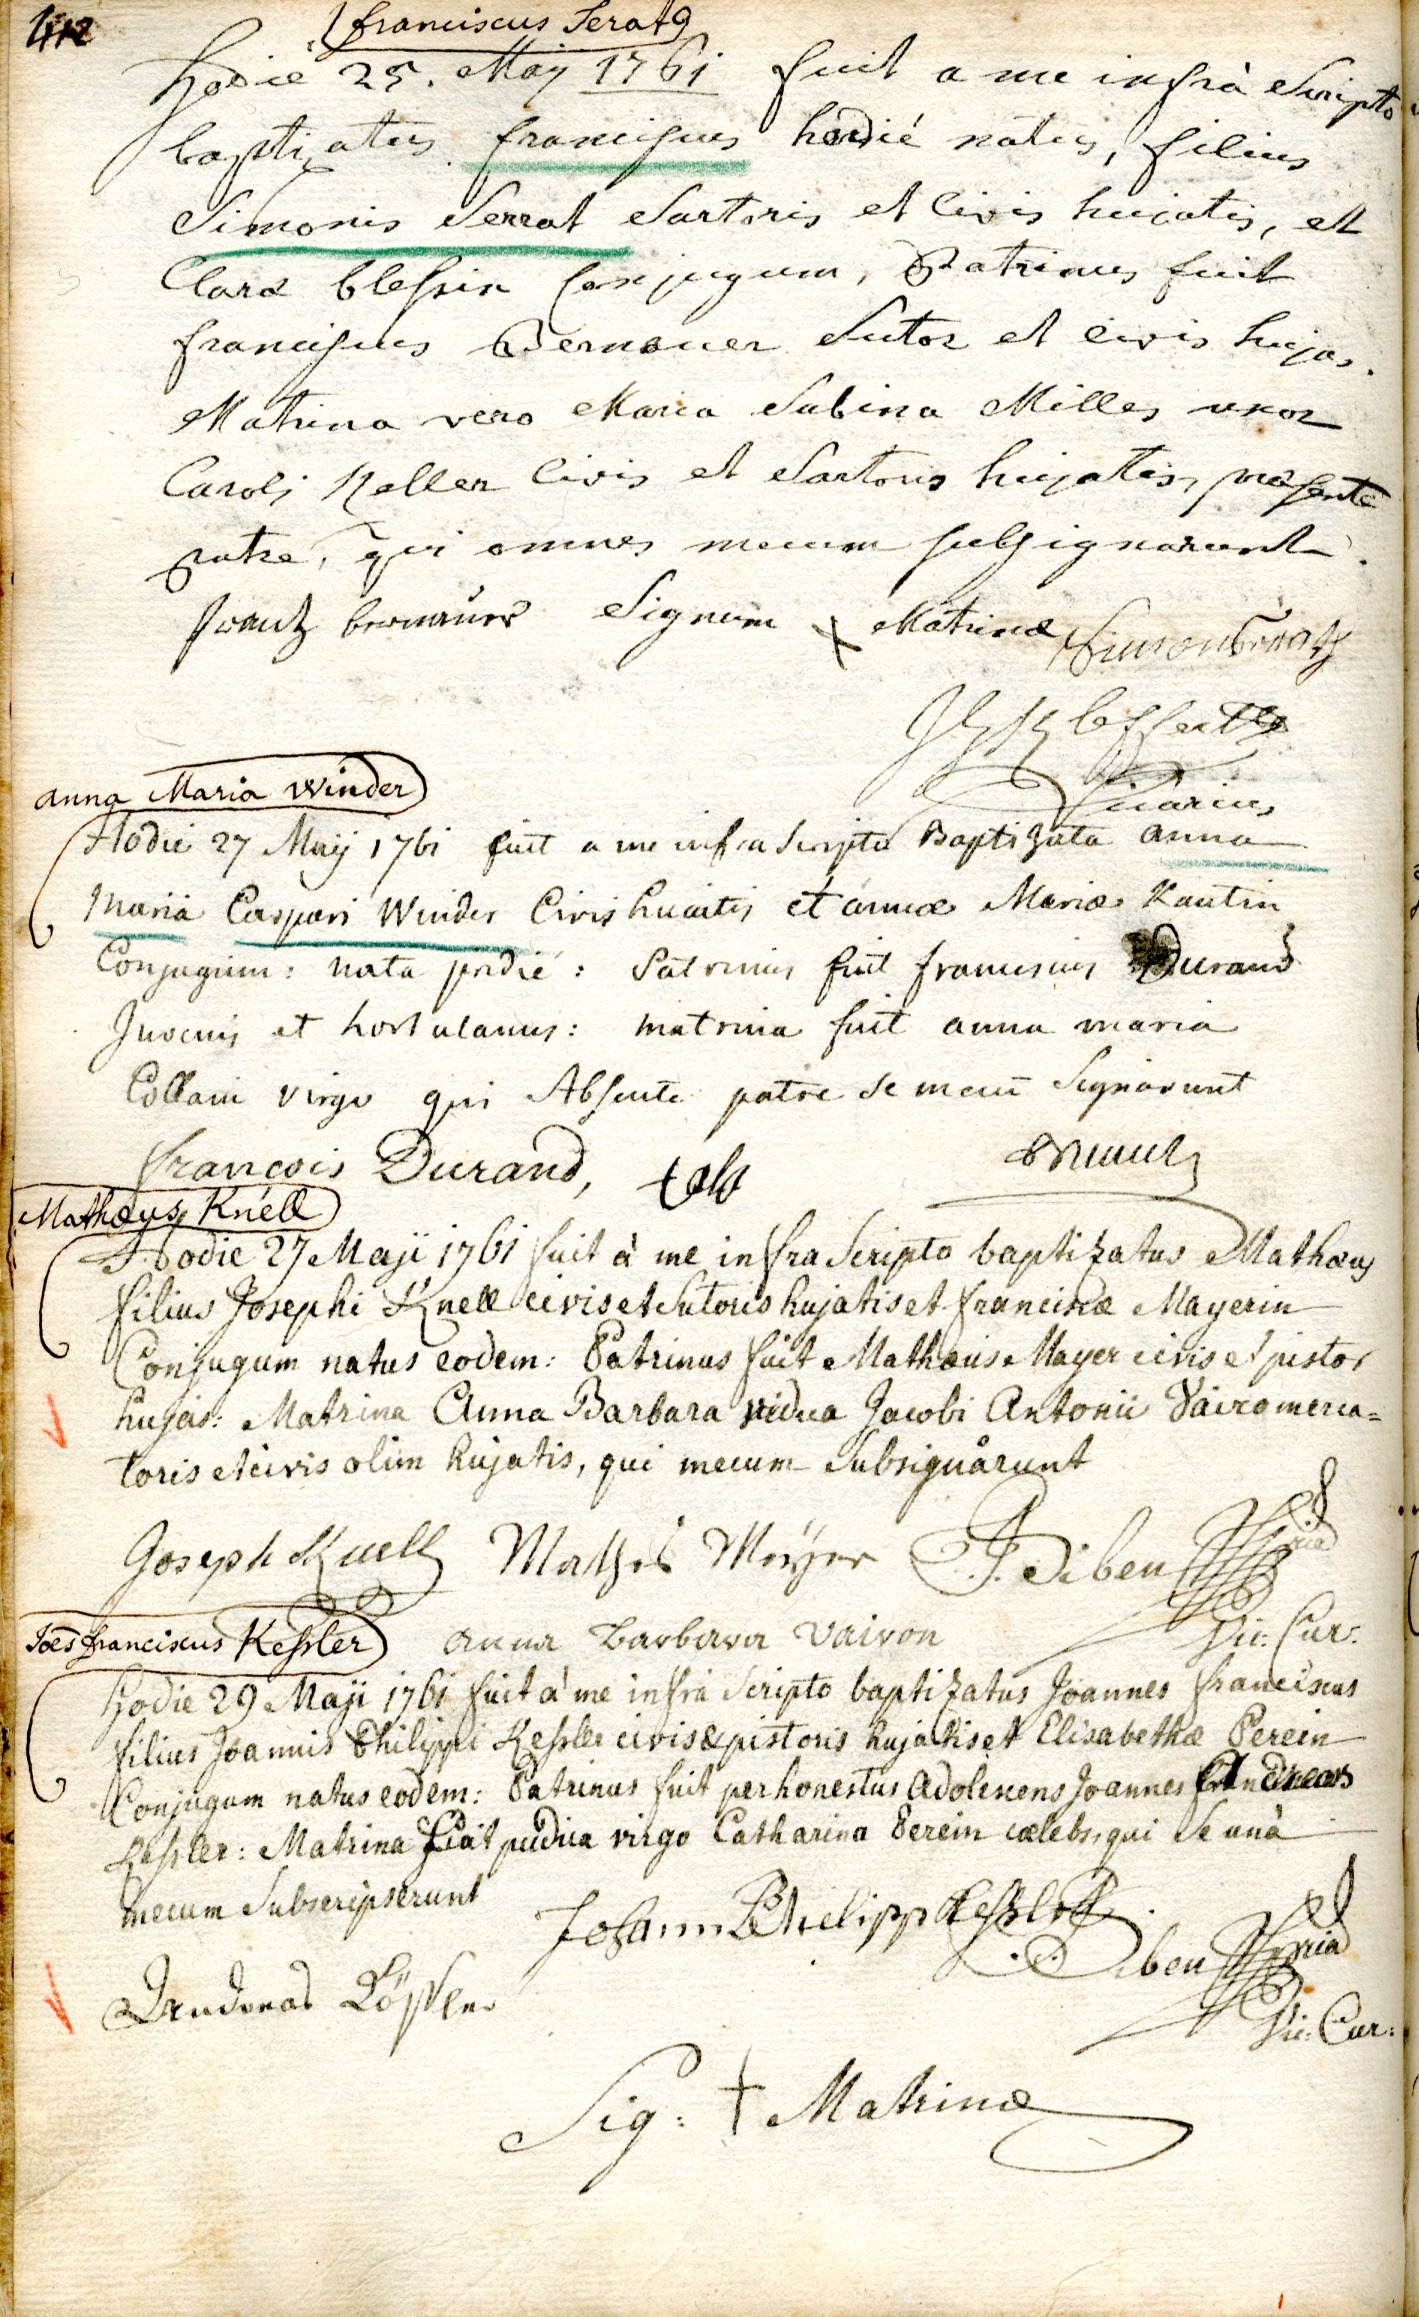 412
franciscus Serat
hodie 25. Maij 1761 fuit a me infrà Scripto
baptizatus franciscus hodié natus, filius
Simonis Serrat Sartoris et Civis huiatis, et
Claræ Blessin Conjugum, Patrinus fuit
franciscus Bernauer Sutor et Civis hujas.
Matrina vero Maria Sabina Milles uxor
Caroli Keller Civis et Sartoris hujatis, præsente
patre, qui omnes mecum subsignarunt.
frantz bernauer Signum x Matrinæ Simon Seratz
Vicarius
anna Maria Winder
Hodie 27 Maij 1761 fuit a me infra Scripto Baptizata anna
Maria Caspari Winder Civis huiatis et annæ Mariæ Kautin
Conjugum: nata pridié: Patrinus fuit franciscus Durand
Juvenis et hortulanus: matrina fuit anna maria
Collani virgo qui Absente patre se mecū Signarunt
francois Durand,
Mathæus Knéll
Hodie 27 Maji 1761 fuit à me infra Scripto baptizatus Mathæus
filius Josephi Knell civis et Sutoris hujatis et franciscæ Mayerin
Conjugum natus eodem: Patrinus fuit Mathæus Mayer civis et pistor
hujas: Matrina Anna Barbara vidua Jacobi Antonii Vairo merca=
toris et civis olim hujatis, qui mecum Subsignârunt
Joseph Knell Mathis Meÿer
anna barbara vairon Vic: Cur:
Joēs franciscus Kessler
hodie 29 Maji 1761 fuit à me infrà Scripto baptizatus Joannes franciscus
filius Joannis Philippi Kessler civis & pistoris hujatis et Elisabethæ Perein
Conjugum natus eodem: Patrinus fuit perhonestus adolescens Joannes Andreas
Kessler: Matrina fuit pudica virgo Catharina Perein cælebs, qui Se unà
mecum Subscripserunt
Johann Phelipp Kessler
Vic: Cur:
Sig: † Matrinæ